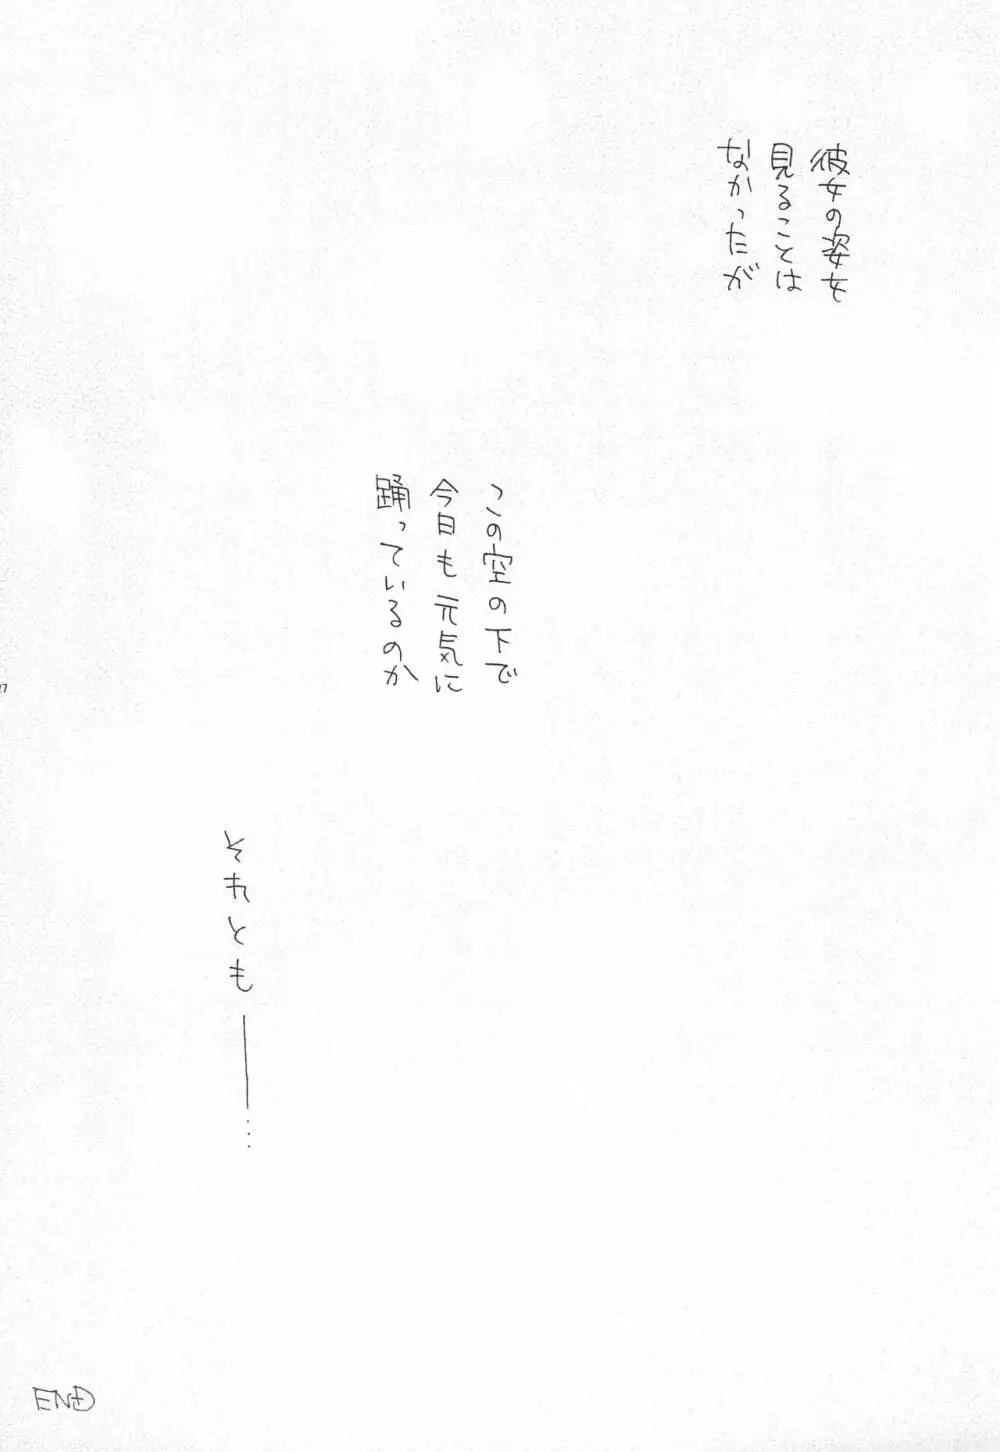 彼女の姿を
見ることは
なかったが
この空の下で
今日も元気に
踊っているのか
それとも――‥‥
27
END